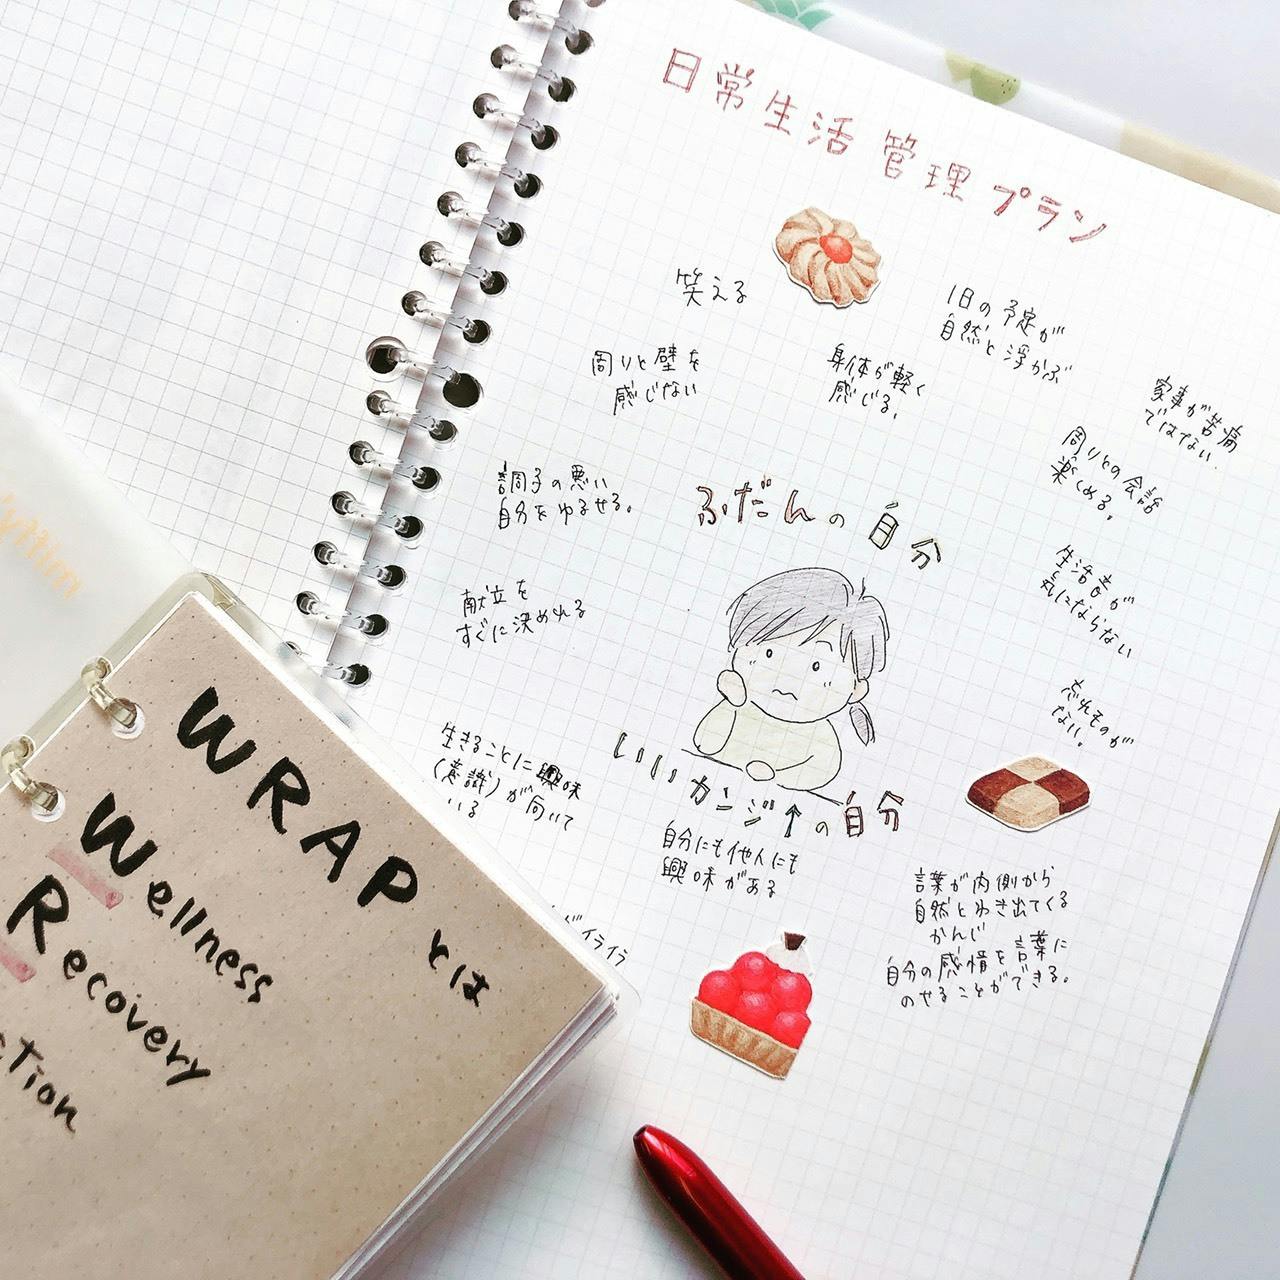 日常生活 管理 プラン
笑える
1日の予定が
自然と浮かぶ
周りと壁を
感じない
身体が軽く
感じる。
家事が苦痛
ではない。
周りとの会話
楽しめる。
調子の悪い
自分をゆるせる。
ふだんの自分
生活音が
気にならない
献立を
すぐに決めれる
忘れものが
ない。
生きることに興味
(意識)が向いて
いる
いいカンジ↑の自分
自分にも他人にも
興味がある
言葉が内側から
自然とわき出てくる
かんじ
自分の感情を言葉に
のせることができる。
イライラ
WRAPとは
Wellness
Recovery
ction